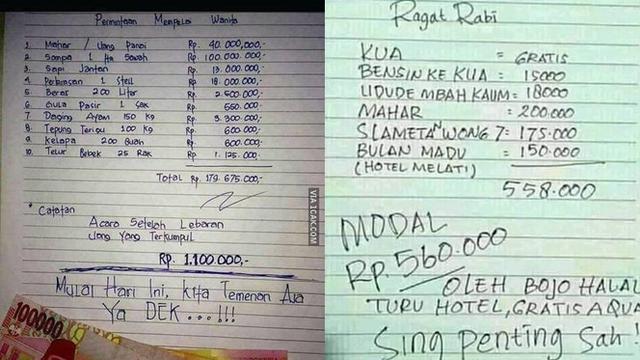 Permintaan Mempelai Wanita
1. Mahar / Uang Panai Rp. 40.000.000,-
2. Sompa 1 Ha Sawah Rp. 100.000.000,-
3. Sapi Jantan Rp. 13.000.000,-
4. Perhiasan 1 Stell Rp. 18.000.000,-
5. Beras 200 Liter Rp. 2.500.000,-
6. Gula Pasir 1 Sak Rp. 550.000,-
7. Daging Ayam 150 Kg Rp. 3.300.000,-
8. Tepung Terigu 100 Kg Rp. 600.000,-
9. Kelapa 200 Buah Rp. 600.000,-
10. Telur Bebek 25 Rak Rp. 1.125.000,-
Total Rp. 179.675.000,-
* Catatan
Acara Setelah Lebaran
Uang Yang Terkumpul
Rp. 1.100.000,-
Mulai Hari Ini, Kita Temenan Aja
Ya DEK...!!!
100000
VIA 1CAK.COM
Ragat Rabi
KUA = GRATIS
BENSIN KE KUA = 15000
UDUDE MBAH KAUM = 18000
MAHAR = 200.000
SLAMETAN WONG 7 = 175.000
BULAN MADU = 150.000
(HOTEL MELATI)
558.000
MODAL
Rp. 560.000
OLEH BOJO HALAL
TURU HOTEL, GRATIS AQUA
Sing penting Sah!